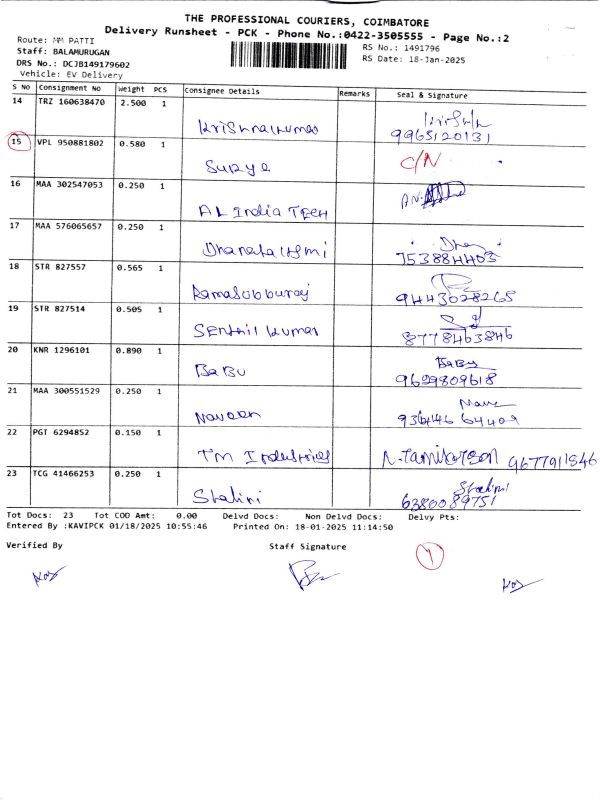 THE PROFESSIONAL COURIERS, COIMBATORE
Delivery Runsheet - PCK - Phone No.:0422-3505555 - Page No.:2
Route: MM PATTI
Staff: BALAMURUGAN
DRS No.: DCJB149179602
Vehicle: EV Delivery
RS No.: 1491796
RS Date: 18-Jan-2025
S No Consignment No Weight PCS Consignee Details Remarks Seal & Signature
14 TRZ 160638470 2.500 1
Krishnakumar 9965120131
15 VPL 950881802 0.580 1
Surya C/N
16 MAA 302547053 0.250 1
AL India TECH
17 MAA 576065657 0.250 1
Dhanalakshmi 7538844403
18 STR 827557 0.565 1
Ramasubburaj 9443028265
19 STR 827514 0.505 1
SENthil Kumar 8778463846
20 KNR 1296101 0.890 1
BaBu
BaBu 9629809618
21 MAA 300551529 0.250 1
Naveen
22 PGT 6294852 0.150 1
TM Industries 9677911846
23 TCG 41466253 0.250 1
Shalini
Shalini 6380089751
Tot Docs: 23 Tot COD Amt: 0.00 Delvd Docs: Non Delvd Docs: Delvy Pts:
Entered By :KAVIPCK 01/18/2025 10:55:46 Printed On: 18-01-2025 11:14:50
Verified By Staff Signature